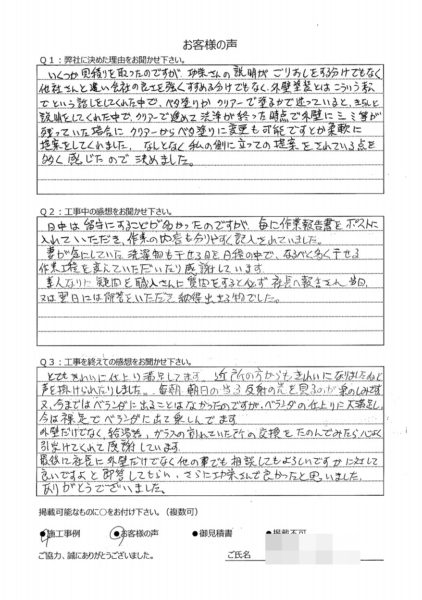 お客様の声
Q１：弊社に決めた理由をお聞かせ下さい。
いくつか見積りを取ったのですが、功栄さんの説明がごりおしをする分けでもなく
他社さんと違い会社の良さを強くすすめる分けでもなく、外壁塗装とはこういう事
でという話しをしてくれた中で、ベタ塗りかクリアーで塗るかで迷っていると、きちんと
説明をしてくれた中で、クリアーで進めて洗浄が終った時点で外壁にシミ等が
残っていた場合にクリアーからベタ塗りに変更も可能ですとか柔軟に
提案をしてくれました。なんとなく私の側に立っての提案をされている点を
多く感じたので決めました。
Q２：工事中の感想をお聞かせ下さい。
日中は留守にすることが多かったのですが、毎に作業報告書をポストに
入れていただき、作業の内容も分りやすく記入されていました。
妻が気にしていた洗濯物も干せる日を日程の中で、なるべく多く干せる
作業工程を組んでいただいたり感謝しています。
素人なりに疑問を職人さんに質問をすると必ず社長へ報告され、当日、
又は翌日には解答をいただいて納得出来る物でした。
Q３：工事を終えての感想をお聞かせ下さい。
とてもきれいに仕上り満足してます。近所の方からもきれいになりましたねと
声を掛けられたりしました。毎朝、朝日の当る反射の光を見るのが楽しみです
又、今まではベランダに出ることはなかったのですが、ベランダの仕上りに大満足し、
今は裸足でベランダに出て楽しんでます
外壁だけでなく、給湯器、ガラスの割れていた所の交換をたのんでみたら心よく
引受けてくれて感謝しています。
最後に社長に外壁だけでなく他の事でも相談してもよろしいですかに対して
良いですよと即答してもらい、さらに功栄さんで良かったと思いました。
ありがとうございました。
掲載可能なものに○をお付け下さい。（複数可）
●施工事例　●お客様の声　●御見積書　●掲載不可
ご協力、誠にありがとうございました。
ご氏名